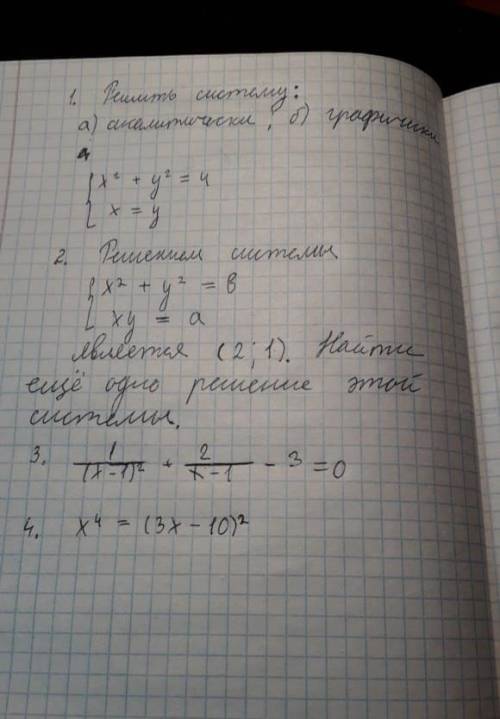 1. Решить систему:
а) аналитически; б) графически
{ x² + y² = 4
x = y
2. Решением системы
{ x² + y² = в
xy = a
является (2; 1). Найти
ещё одно решение этой
системы.
3. 1/(x-1)² + 2/(x-1) - 3 = 0
4. x⁴ = (3x - 10)²